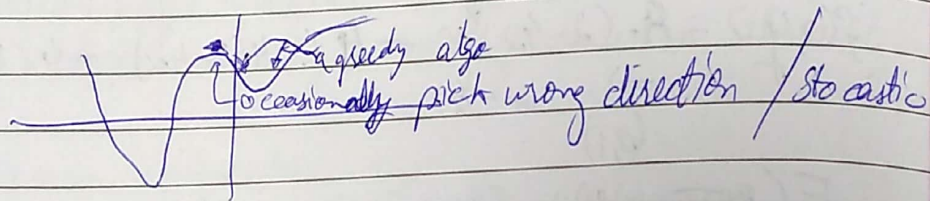 a greedy algo
occasionally pick wrong direction / stocastic